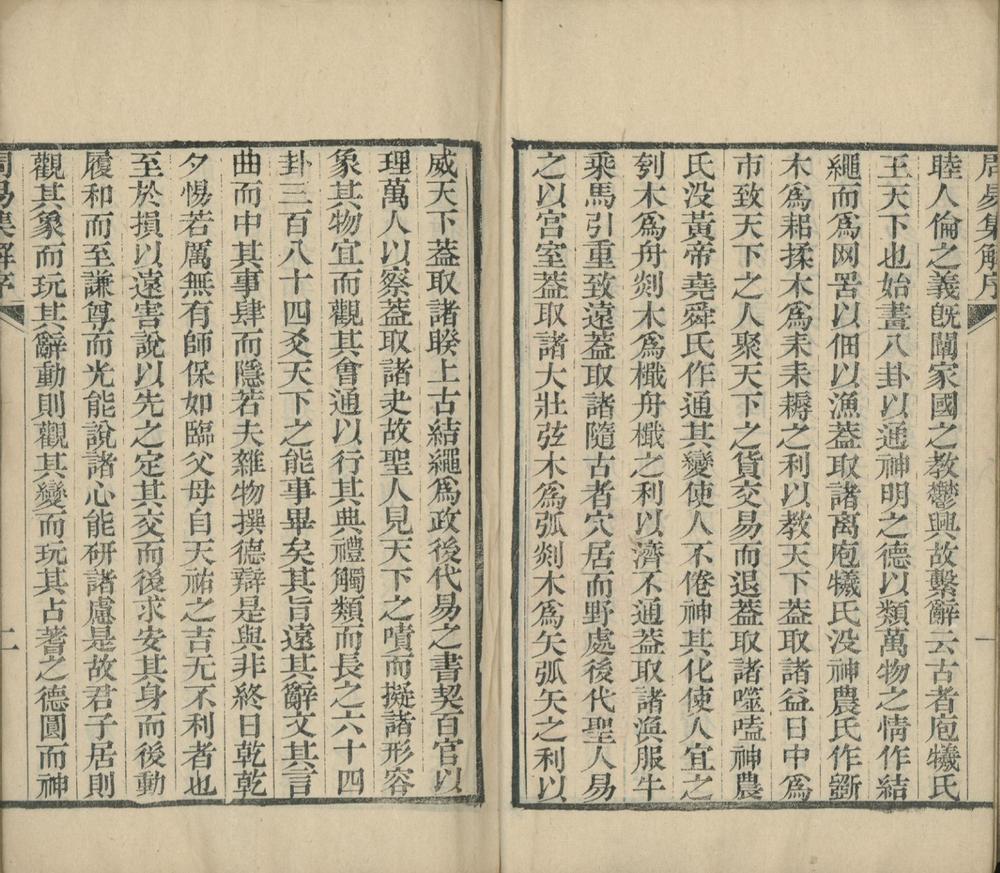 周易集解序
一
睦人倫之義旣闡家國之教鬱興故繫辭云古者庖犧氏
王天下也始畫八卦以通神明之德以類萬物之情作結
繩而爲网罟以佃以漁葢取諸离庖犧氏没神農氏作斵
木爲耜揉木爲耒耒耨之利以教天下葢取諸益日中爲
市致天下之人聚天下之貨交易而退葢取諸噬嗑神農
氏没黃帝堯舜氏作通其變使人不倦神其化使人宜之
刳木爲舟剡木爲檝舟檝之利以濟不通葢取諸渙服牛
乘馬引重致遠葢取諸隨古者穴居而野處後代聖人易
之以宮室葢取諸大壯弦木爲弧剡木爲矢弧矢之利以
威天下葢取諸睽上古結繩爲政後代易之書契百官以
理萬人以察葢取諸夬故聖人見天下之嘖而擬諸形容
象其物宜而觀其會通以行其典禮觸類而長之六十四
卦三百八十四爻天下之能事畢矣其旨遠其辭文其言
曲而中其事肆而隱若夫雜物撰德辯是與非終日乾乾
夕惕若厲無有師保如臨父母自天祐之吉无不利者也
至於損以遠害說以先之定其交而後求安其身而後動
履和而至謙尊而光能說諸心能研諸慮是故君子居則
觀其象而玩其辭動則觀其變而玩其占蓍之德圓而神
周易集解序
二